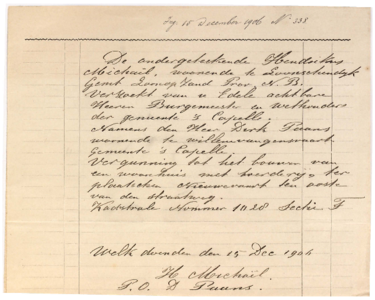 Ing. 15 December 1906 No. 338
De ondergeteekende Hendrikus
Michaël, woonende te Zuurschendyk
Gemt Zonsp Zand Prov. N. B.
Verzoekt van u Edele achtbare
Heeren Burgemeester en wethouders
der gemeente 's Capelle.
Namens den Heer Derk Paans
woonende te willem vangensvaart
Gemeente 's Capelle
Vergunning tot het bouwen van
een woonhuis met boerdery, ter
plaatschen Nieuwevaart ten ooste
van den straatweg.
Kadstrale Nommer 1028 Sectie F
Welk doenden den 15 Dec 1906
H Michaël.
P. O. D Paans.